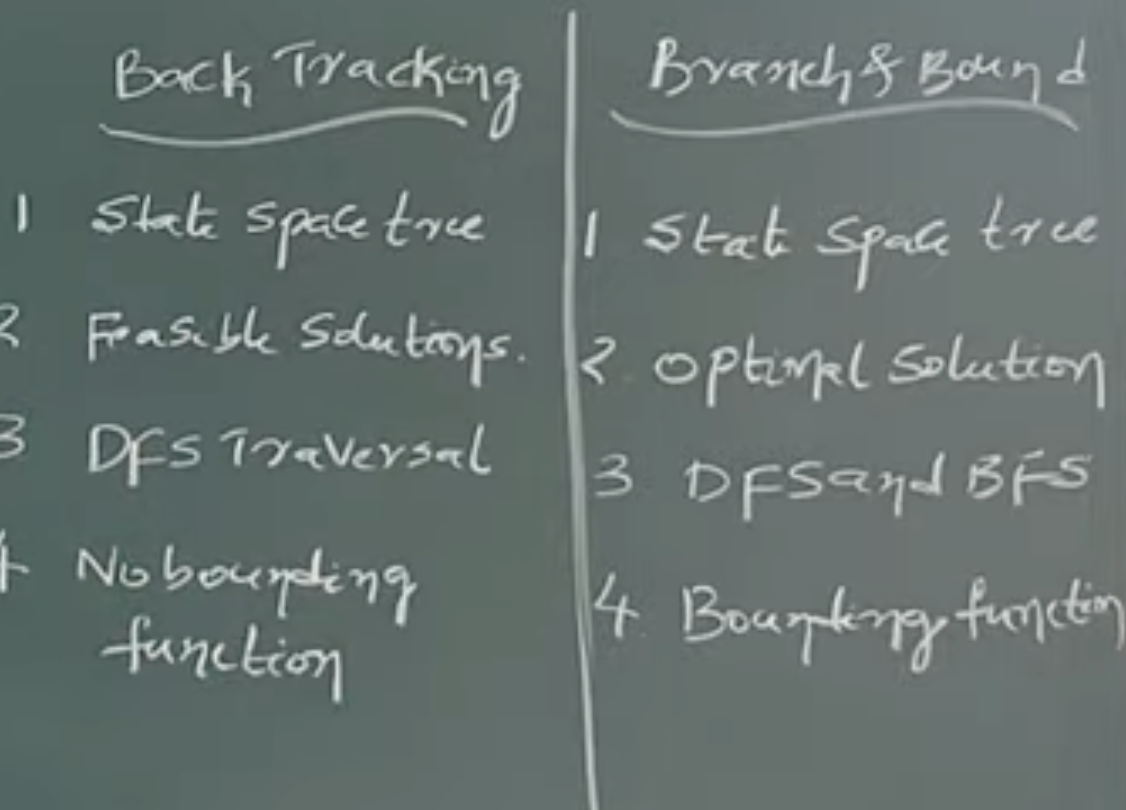 Back Tracking
1 State space tree
2 Feasible Solutions.
3 DFS Traversal
4 No bounding
function
Branch & Bound
1 State Space tree
2. Optimal Solution
3 DFS and BFS
4. Bounding function